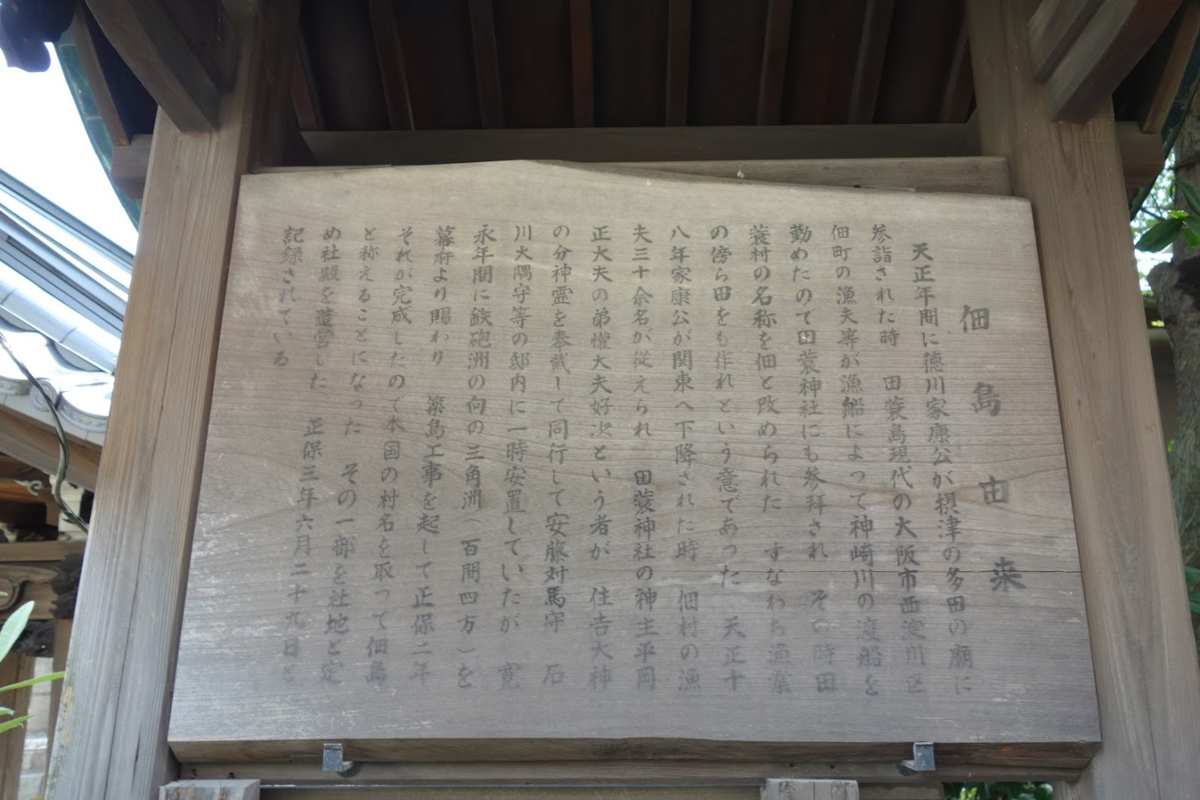 佃島由来
天正年間に徳川家康公が摂津の多田の廟に
参詣された時　田蓑島現代の大阪市西淀川区
佃町の漁夫等が漁船によって神崎川の渡船を
勤めたので田蓑神社にも参拝され　その時田
蓑村の名称を佃と改められた　すなわち漁業
の傍ら田をも作れという意であった　天正十
八年家康公が関東へ下降された時　佃村の漁
夫三十余名が従えられ　田蓑神社の神主平岡
正大夫の弟権大夫好次という者が　住吉大神
の分神霊を奉戴して同行して安藤対馬守　石
川大隅守等の邸内に一時安置していたが　寛
永年間に鉄砲洲の向の三角洲（百間四方）を
幕府より賜わり　築島工事を起して正保二年
それが完成したので本国の村名を取って佃島
と称えることになった　その一部を社地と定
め社殿を造営した　正保三年六月二十九日と
記録されている